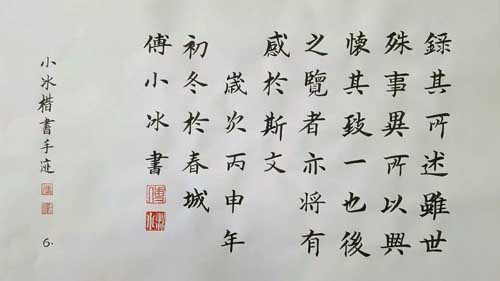 錄其所述雖世
殊事異所以興
懷其致一也後
之覽者亦将有
感於斯文
歲次丙申年
初冬於春城
傅小冰書
小冰楷書手迹
6.